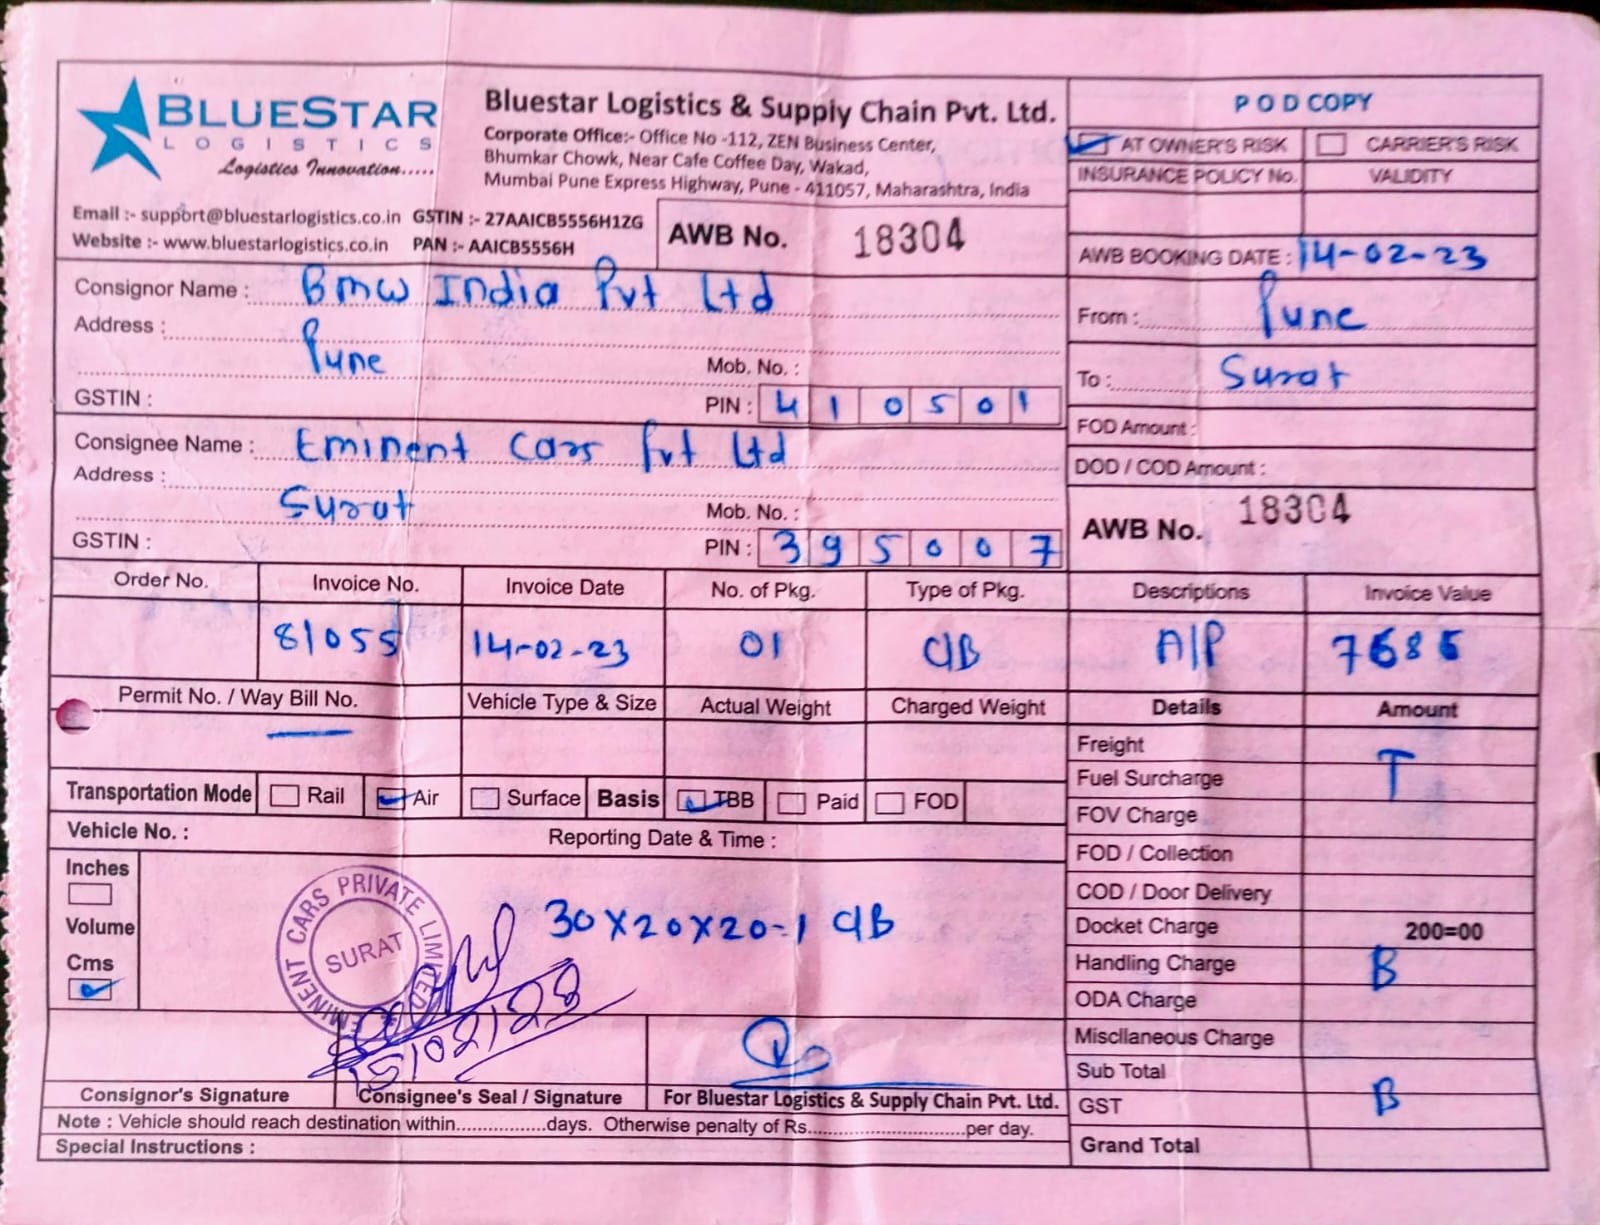 BLUESTAR
LOGISTICS
Logistics Innovation.....
Bluestar Logistics & Supply Chain Pvt. Ltd.
Corporate Office:- Office No -112, ZEN Business Center,
Bhumkar Chowk, Near Cafe Coffee Day, Wakad,
Mumbai Pune Express Highway, Pune - 411057, Maharashtra, India
Email :- support@bluestarlogistics.co.in GSTIN :- 27AAICB5556H1ZG
Website :- www.bluestarlogistics.co.in PAN :- AAICB5556H
AWB No. 18304
POD COPY
AT OWNER'S RISK CARRIER'S RISK
INSURANCE POLICY No. VALIDITY
AWB BOOKING DATE : 14-02-23
Consignor Name : BMW India Pvt Ltd
Address :
Pune
Mob. No. :
GSTIN :
PIN : 410501
From : Pune
To : Surat
Consignee Name : Eminent Cars Pvt Ltd
Address :
Surat
Mob. No. :
GSTIN :
PIN : 395007
FOD Amount :
DOD / COD Amount :
AWB No. 18304
Order No. Invoice No. Invoice Date No. of Pkg. Type of Pkg. Descriptions Invoice Value
81055 14-02-23 01 C/B A/P
Permit No. / Way Bill No. Vehicle Type & Size Actual Weight Charged Weight Details Amount
Transportation Mode Rail Air Surface Basis TBB Paid FOD
Vehicle No. : Reporting Date & Time :
Inches
Volume
Cms
30X20X20-1 C/B
EMINENT CARS PRIVATE LIMITED
SURAT
15/02/23
Consignor's Signature Consignee's Seal / Signature For Bluestar Logistics & Supply Chain Pvt. Ltd.
Note : Vehicle should reach destination within.................days. Otherwise penalty of Rs..............................per day.
Special Instructions :
Freight
T
Fuel Surcharge
FOV Charge
FOD / Collection
COD / Door Delivery
Docket Charge 200=00
Handling Charge B
ODA Charge
Miscllaneous Charge
Sub Total
GST B
Grand Total